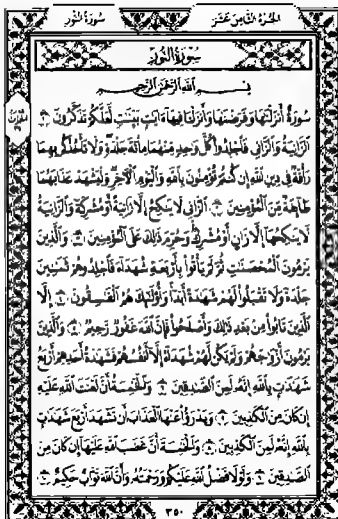 سورة النور الجزء الثامن عشر
سورة النور
بسم الله الرحمن الرحيم
سورة أنزلناها وفرضناها وأنزلنا فيها آيات بينات لعلكم تذكرون ١
الزانية والزاني فاجلدوا كل واحد منهما مائة جلدة ولا تأخذكم بهما
رأفة في دين الله إن كنتم تؤمنون بالله واليوم الآخر وليشهد عذابهما
طائفة من المؤمنين ٢ الزاني لا ينكح إلا زانية أو مشركة والزانية
لا ينكحها إلا زان أو مشرك وحرم ذلك على المؤمنين ٣ والذين
يرمون المحصنات ثم لم يأتوا بأربعة شهداء فاجلدوهم ثمانين
جلدة ولا تقبلوا لهم شهادة أبدا وأولئك هم الفاسقون ٤ إلا
الذين تابوا من بعد ذلك وأصلحوا فإن الله غفور رحيم ٥ والذين
يرمون أزواجهم ولم يكن لهم شهداء إلا أنفسهم فشهادة أحدهم أربع
شهادات بالله إنه لمن الصادقين ٦ والخامسة أن لعنت الله عليه
إن كان من الكاذبين ٧ ويدرؤا عنها العذاب أن تشهد أربع شهادات
بالله إنه لمن الكاذبين ٨ والخامسة أن غضب الله عليها إن كان من
الصادقين ٩ ولولا فضل الله عليكم ورحمته وأن الله تواب حكيم ١٠
٣٥٠